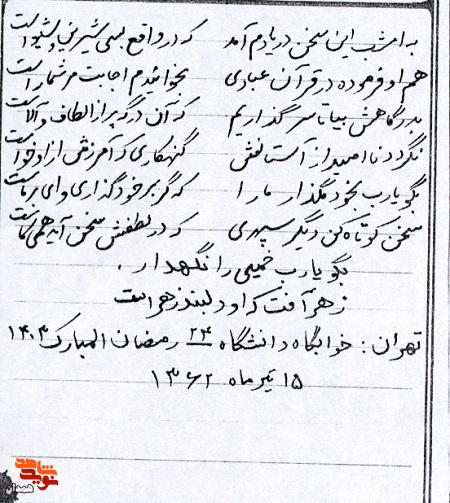 به امشب این سخن در یادم آمد که در واقع بسی شیرین و شیواست
هم او فرموده در قرآن عبادی بخواندم اجابت مر شما راست
به درگاهش بیا تا سر گذاریم که آن درگه پر از الطاف و آلاست
نگردد ناامید از آستانش گنهکاری که آمرزش از او خواست
بگو یارب بخود مگذار ما را که گر بر خود گذاری وای بر ماست
سخن کوتاه کن دیگر سپهری که در لطفش سخن آید همی
بگو یارب خمینی را نگهدار .
ز هر آفت که او دلبند زهراست
تهران : خوابگاه دانشگاه ۲۴ رمضان المبارک ۱۴۰۳
۱۵ تیر ماه ۱۳۶۲
نوید شاهد
همدان